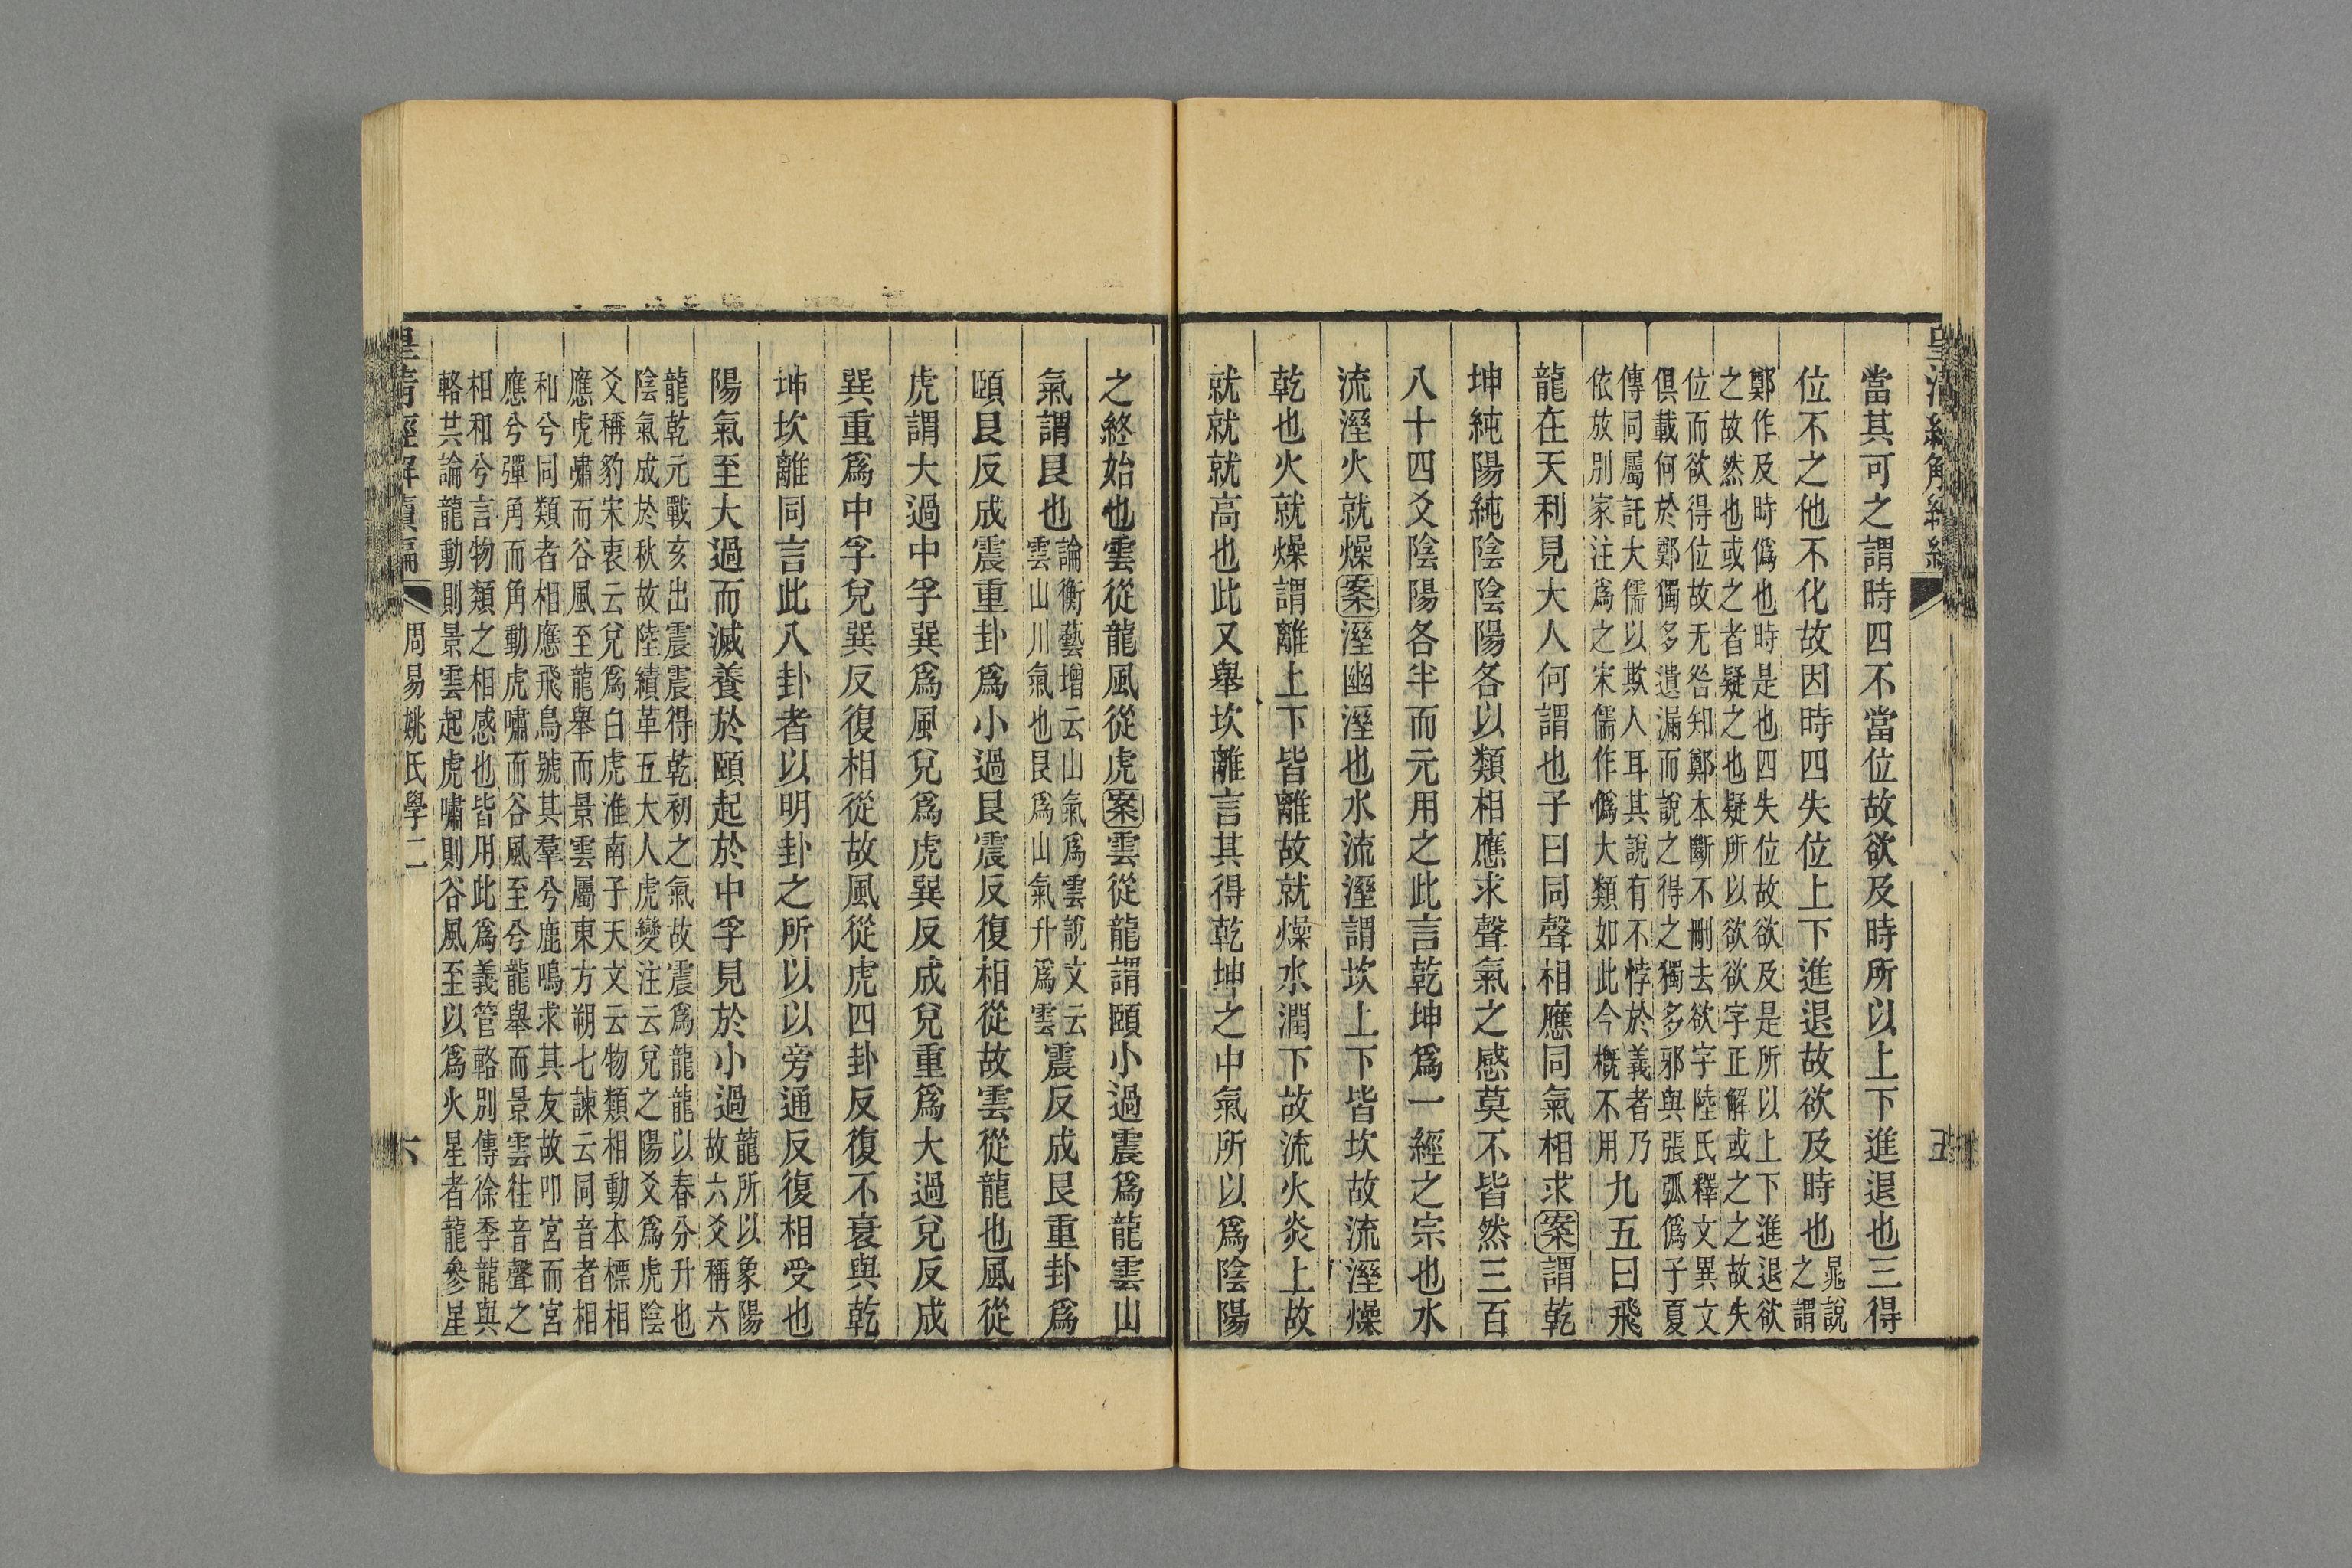 皇清經解續編
五
當其可之謂時四不當位故欲及時所以上下進退也三得
位不之他不化故因時四失位上下進退故欲及時也晁說
之謂
鄭作及時僞也時是也四失位故欲及是所以上下進退欲
之故然也或之者疑之也疑所以欲欲字正解或之之故失
位而欲得位故无咎知鄭本斷不刪去欲字陸氏釋文異文
俱載何於鄭獨多遺漏而說之得之獨多邪與張弧僞子夏
傳同屬託大儒以欺人耳其說有不悖於義者乃
依放別家注爲之宋儒作僞大類如此今概不用九五曰飛
龍在天利見大人何謂也子曰同聲相應同氣相求案謂乾
坤純陽純陰陰陽各以類相應求聲氣之感莫不皆然三百
八十四爻陰陽各半而元用之此言乾坤爲一經之宗也水
流溼火就燥案溼幽溼也水流溼謂坎上下皆坎故流溼燥
乾也火就燥謂離上下皆離故就燥水潤下故流火炎上故
就就就高也此又舉坎離言其得乾坤之中氣所以爲陰陽
之終始也雲從龍風從虎案雲從龍謂頤小過震爲龍雲山
氣謂艮也論衡藝增云山氣爲雲說文云
雲山川氣也艮爲山氣升爲雲震反成艮重卦爲
頤艮反成震重卦爲小過艮震反復相從故雲從龍也風從
虎謂大過中孚巽爲風兌爲虎巽反成兌重爲大過兌反成
巽重爲中孚兌巽反復相從故風從虎四卦反復不衰與乾
坤坎離同言此八卦者以明卦之所以以旁通反復相受也
陽氣至大過而滅養於頤起於中孚見於小過龍所以象陽
故六爻稱六
龍乾元戰亥出震震得乾初之氣故震爲龍龍以春分升也
陰氣成於秋故陸績革五大人虎變注云兌之陽爻爲虎陰
爻稱豹宋衷云兌爲白虎淮南子天文云物類相動本標相
應虎嘯而谷風至龍舉而景雲屬東方朔七諫云同音者相
和兮同類者相應飛鳥號其羣兮鹿鳴求其友故叩宮而宮
應兮彈角而角動虎嘯而谷風至兮龍舉而景雲往音聲之
相和兮言物類之相感也皆用此爲義管輅別傳徐季龍與
輅共論龍動則景雲起虎嘯則谷風至以爲火星者龍參星
皇清經解續編
周易姚氏學二
六